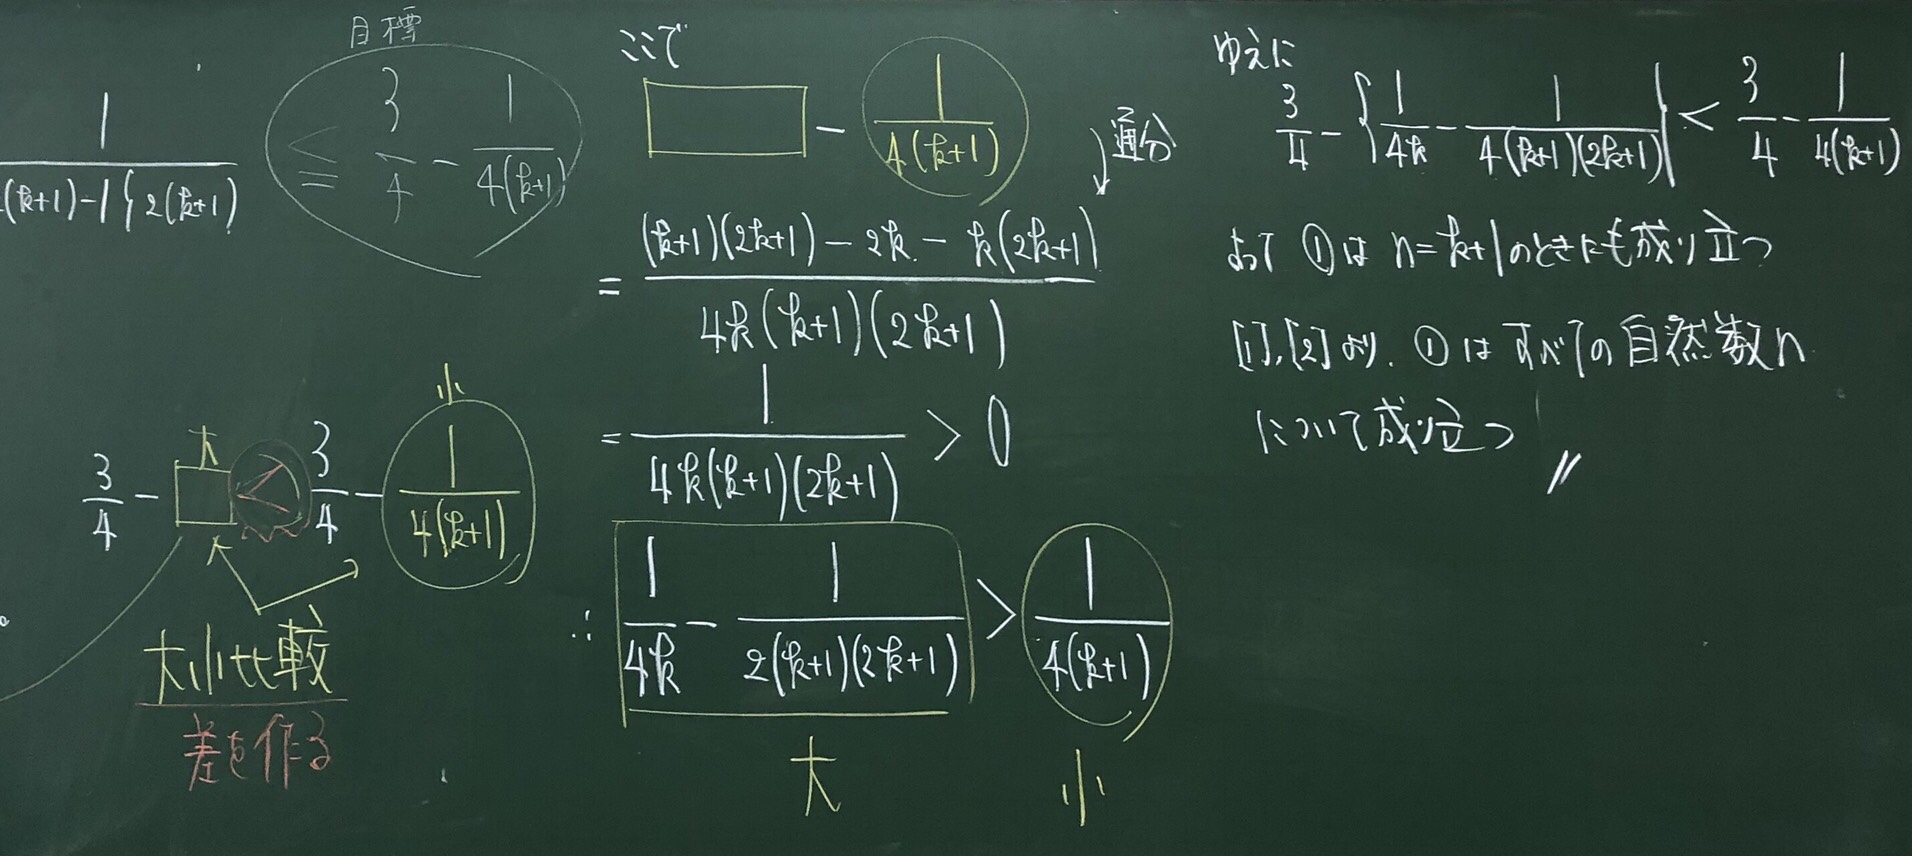 目標
1/({2(k+1)-1}2(k+1)) ≦ 3/4 - 1/(4(k+1))
大 小
3/4 - □ < 3/4 - 1/(4(k+1))
大小比較
差を作る
ここで
□ - 1/(4(k+1))
通分
= ((k+1)(2k+1) - 2k - k(2k+1))/(4k(k+1)(2k+1))
= 1/(4k(k+1)(2k+1)) > 0
∴ 1/(4k) - 1/(2(k+1)(2k+1)) > 1/(4(k+1))
大 小
ゆえに
3/4 - {1/(4k) - 1/(4(k+1)(2k+1))} < 3/4 - 1/(4(k+1))
よって ①は n=k+1のときにも成り立つ
[1],[2]より、①はすべての自然数n
について成り立つ